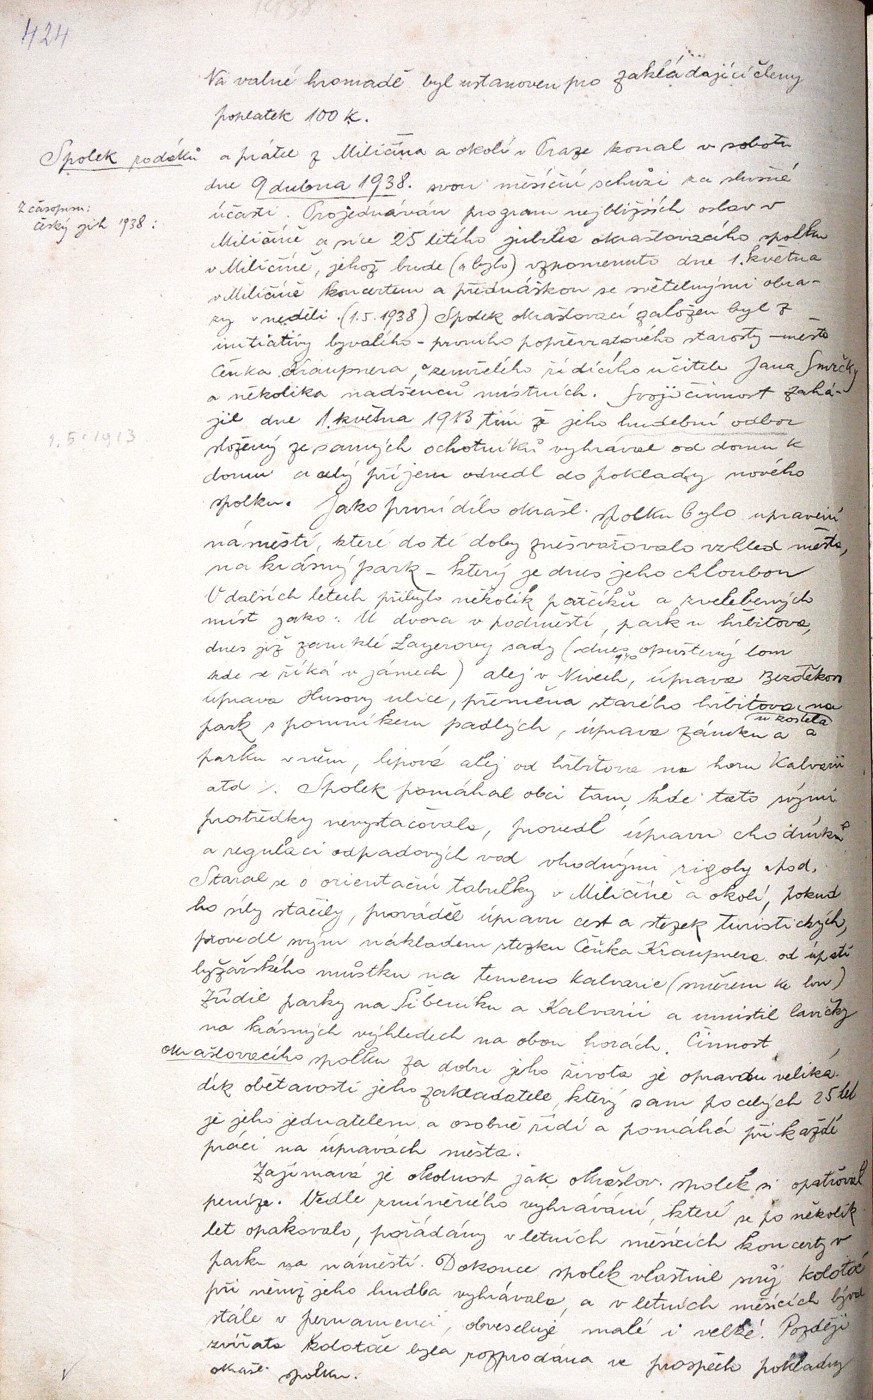 424
Na valné hromadě byl ustanoven pro zakládající členy
poplatek 100 K.
Spolek rodáků a přátel z Miličína a okolí v Praze konal v sobotu
dne 9 dubna 1938. svou měsíční schůzi za slušné
Z časopisu:
Český jih 1938:
účasti. Projednáván program nejbližších oslav v
Miličíně a sice 25 letého jubilea okrašlovacího spolku
v Miličíně, jehož bude (a bylo) vzpomenuto dne 1. května
v Miličíně koncertem a přednáškou se světelnými obra-
zy v neděli. (1.5.1938) Spolek okrašlovací založen byl z
iniciativy bývalého - prvního popřevratového starosty města
Čeňka Kraupnera, a zemřelého řídícího učitele Jana Smrčky
a několika nadšenců místních. Svoji činnost zahá-
jil dne 1. května 1913 tím že jeho hudební odbor
1.5.1913
složený ze samých ochotníků vyhrával od domu k
domu a celý příjem odvedl do pokladny nového
spolku. Jako první dílo okrašl. spolku bylo upravení
náměstí, které do té doby znešvařovalo vzhled města,
na krásný park - který je dnes jeho chloubou
V dalších letech přibylo několik parčíků a zvelebených
míst jako: U dvora v podměstí, park u hřbitova,
dnes již zaniklé Layerovy sady (dnes opuštěný lom
kde se říká v jámech) alej v Nivech, úprava Bezděkov
úprava Husovy ulice, přeměna starého hřbitova na
(u kostela)
park s pomníkem padlých, úprava zámku a
parku v něm, lipová alej od hřbitova na horu Kalvarii
atd. Spolek pomáhal obci tam, kde tato svými
prostředky nevystačovala, provedl úpravu chodníků
a regulaci odpadových vod vhodnými rigoly apod.
Staral se o orientační tabulky v Miličíně a okolí, pokud
ho síly stačily, prováděl úpravu cest a stezek turistických,
provedl svým nákladem stezku Čeňka Kraupnera od úpatí
lyžařského můstku na temeno Kalvarie (směrem ke
Zřídil parky na Šibeníku a Kalvarii a umístil lavičky
na krásných výhledech na obou horách. Činnost
okrašlovacího spolku za dobu jeho života je opravdu veliká.
dík obětavosti jeho zakladatele, který sám po celých 25 let
je jeho jednatelem a osobně řídí a pomáhá při každé
práci na úpravách města.
Zajímavá je okolnost jak okrašlov. spolek si opatřoval
peníze. Vedle zmíněného vyhrávání, které se po několik
let opakovalo, pořádány v letních měsících koncerty v
parku na náměstí. Dokonce spolek vlastnil svůj kolotoč
při němž jeho hudba vyhrávala, a v letních měsících býval
stále v permanenci, obveseluje malé i velké. Později
zvířata kolotoče byla rozprodána ve prospěch pokladny
okrašl. spolku.